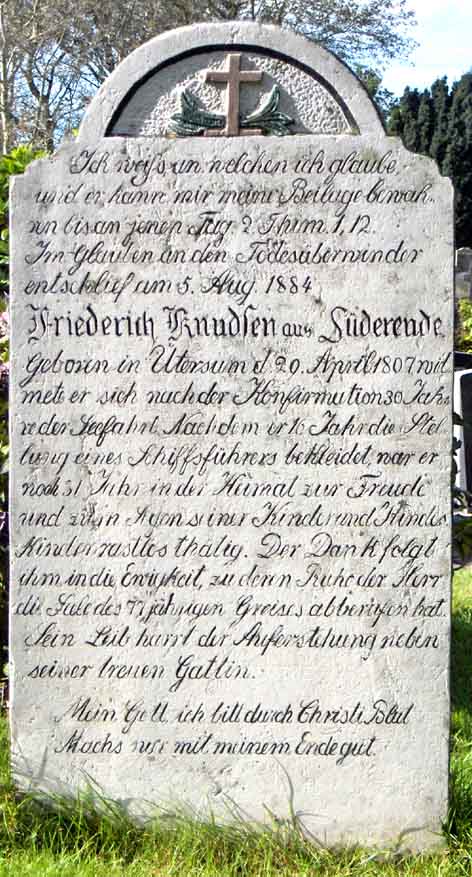 Ich weiß an welchen ich glaube,
und er kann mir meine Beilage bewah-
ren bis an jenen Tag. 2. Thim. 1, 12.
Im Glauben an den Todesüberwinder
entschlief am 5. Aug. 1884
Friederich Knudsen aus Süderende
Geboren in Utersum d. 20. April 1807 wid-
mete er sich nach der Konfirmation 30 Jah-
re der Seefahrt. Nachdem er 16 Jahr die Stel-
lung eines Schiffsführers bekleidet, war er
noch 31 Jahr in der Heimat zur Freude
und zum Segen seiner Kinder und Kindes
Kinder rastlos thätig. Der Dank folgt
ihm in die Ewigkeit, zu deren Ruhe der Herr
die Seele des 77 jährigen Greises abberufen hat.
Sein Leib harrt der Auferstehung neben
seiner treuen Gattin.
Mein Gott ich bitt durch Christi Blut
Machs nur mit meinem Ende gut.